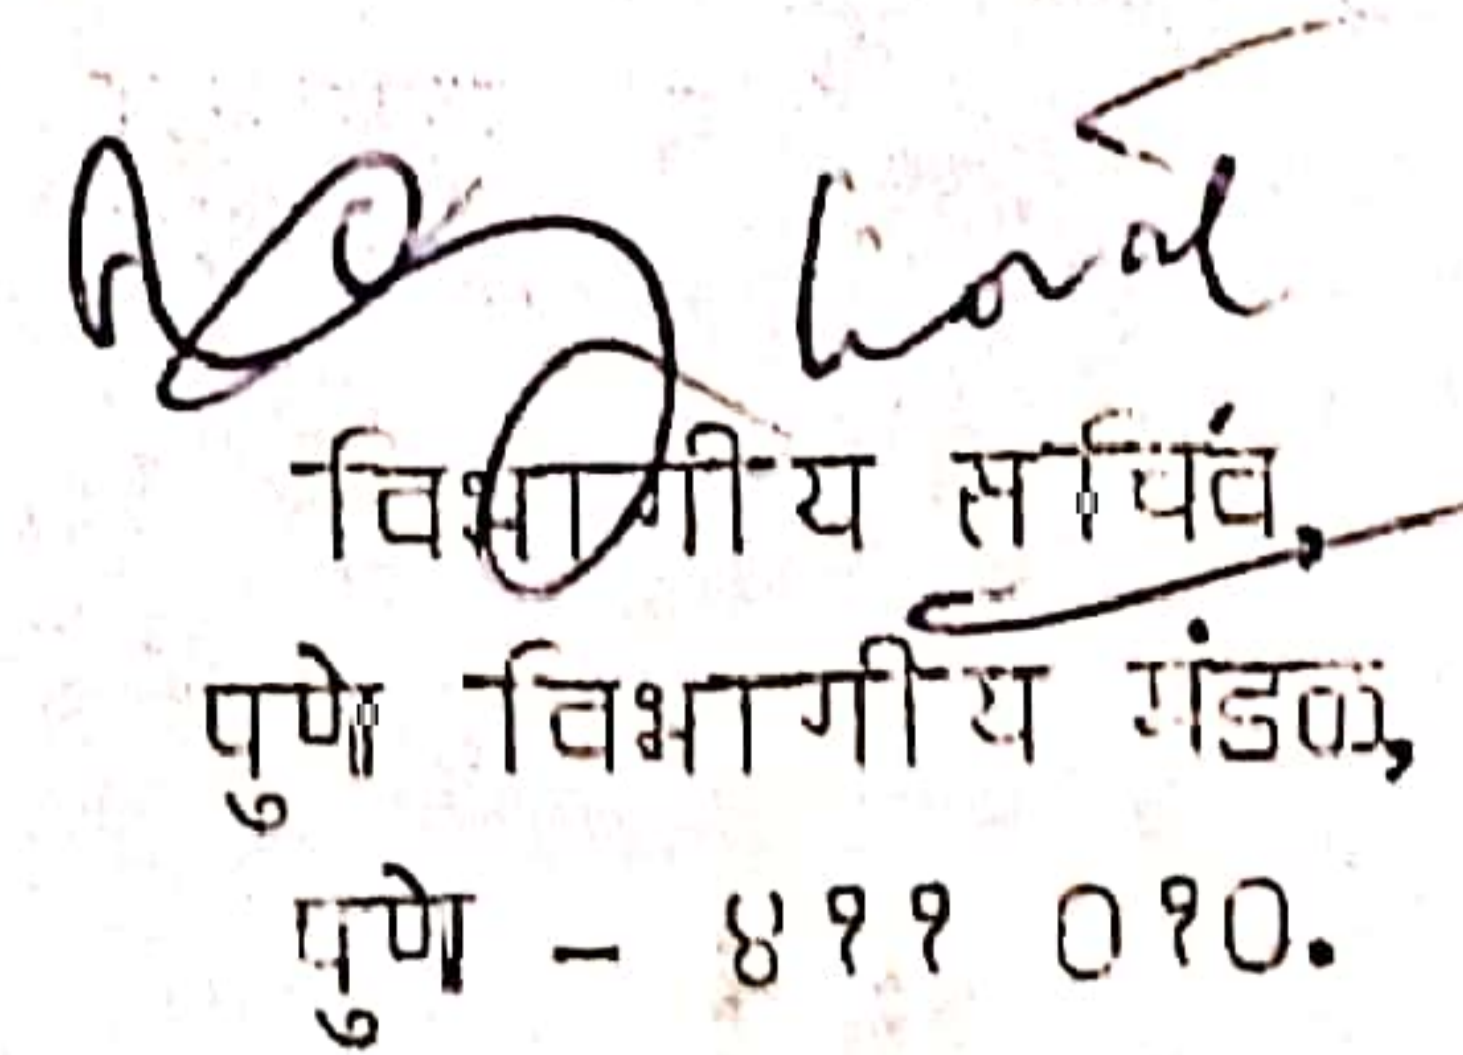 विभागीय सचिव,
पुणे विभागीय मंडळ,
पुणे - ४११ ०१०.